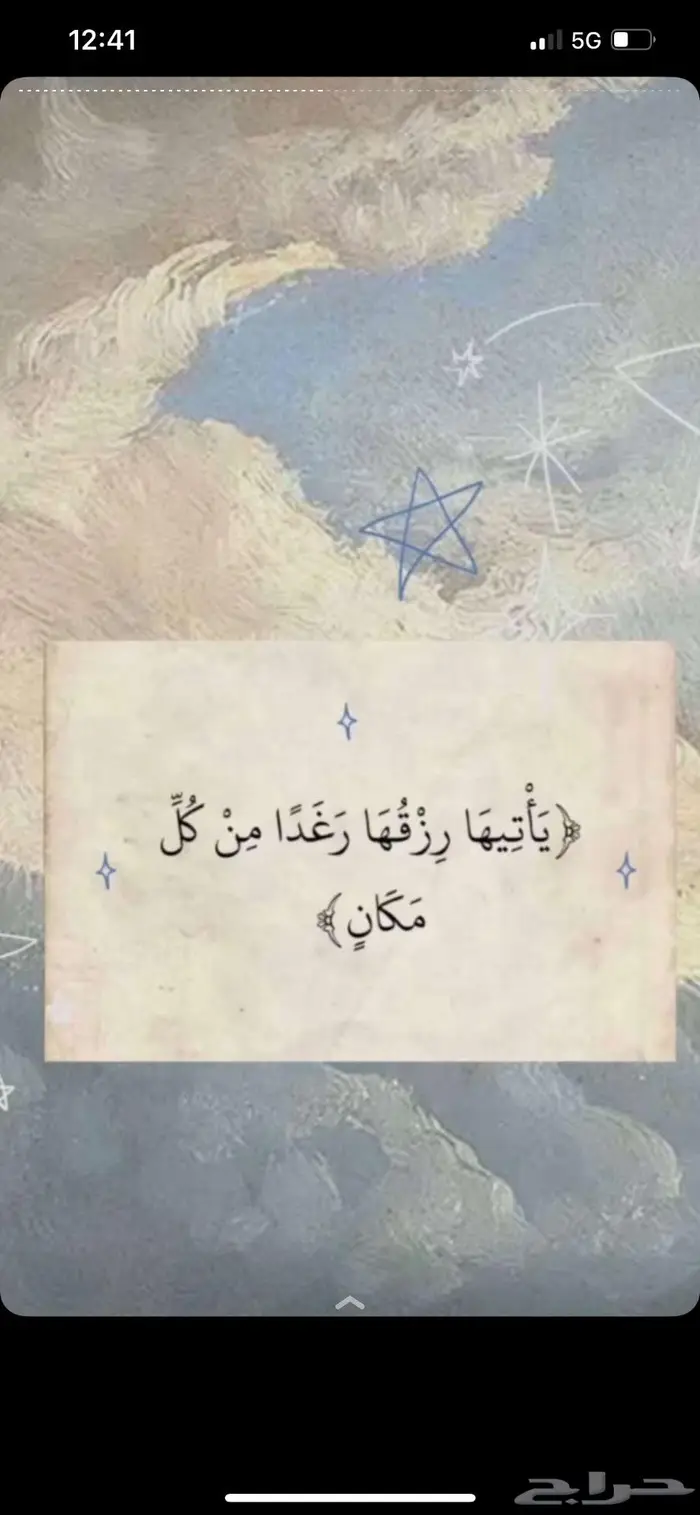 12:41
5G
﴿يَأْتِيهَا رِزْقُهَا رَغَدًا مِنْ كُلِّ
مَكَانٍ﴾
حراج